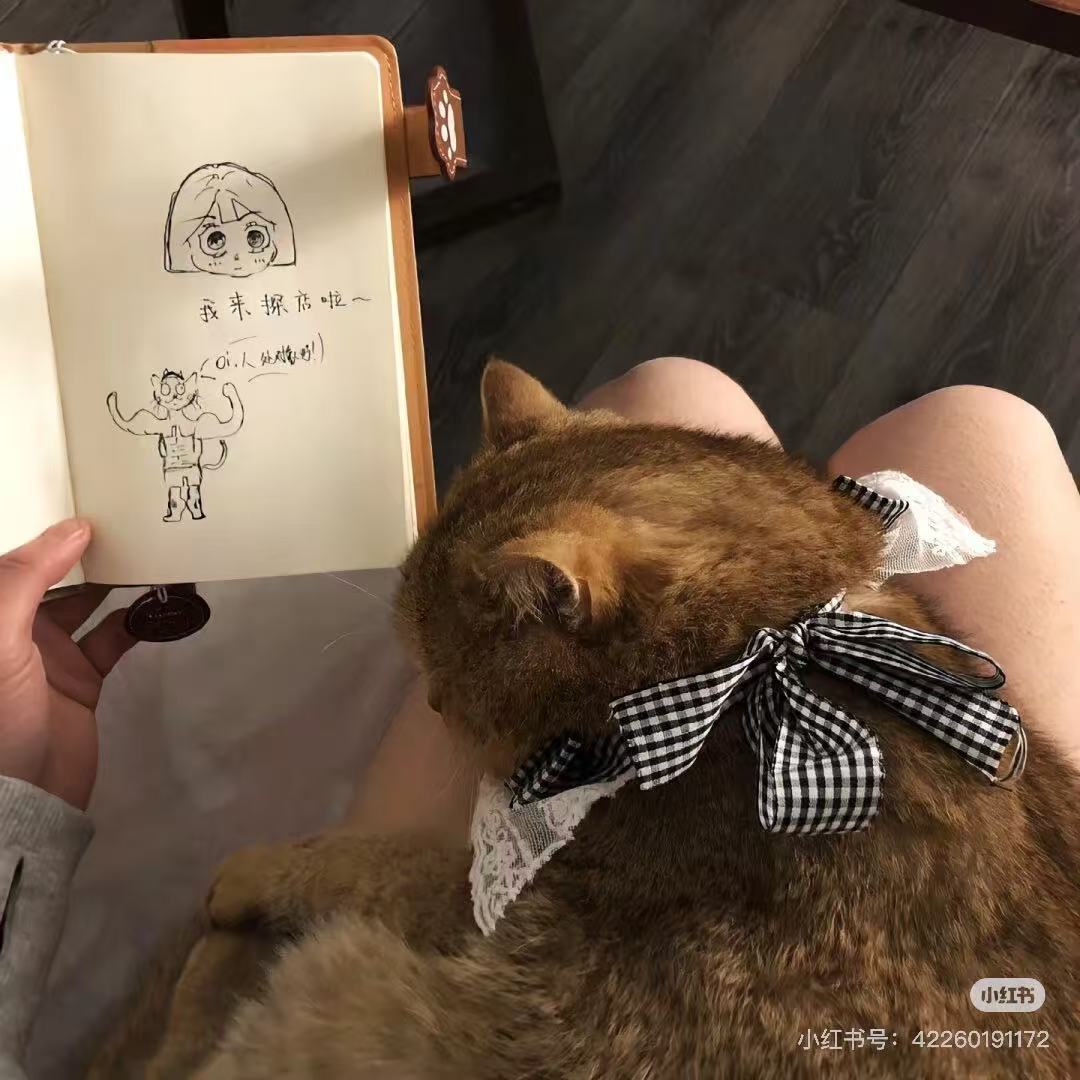 我来探店啦～
Oi，人处对象吗！
小红书
小红书号：42260191172